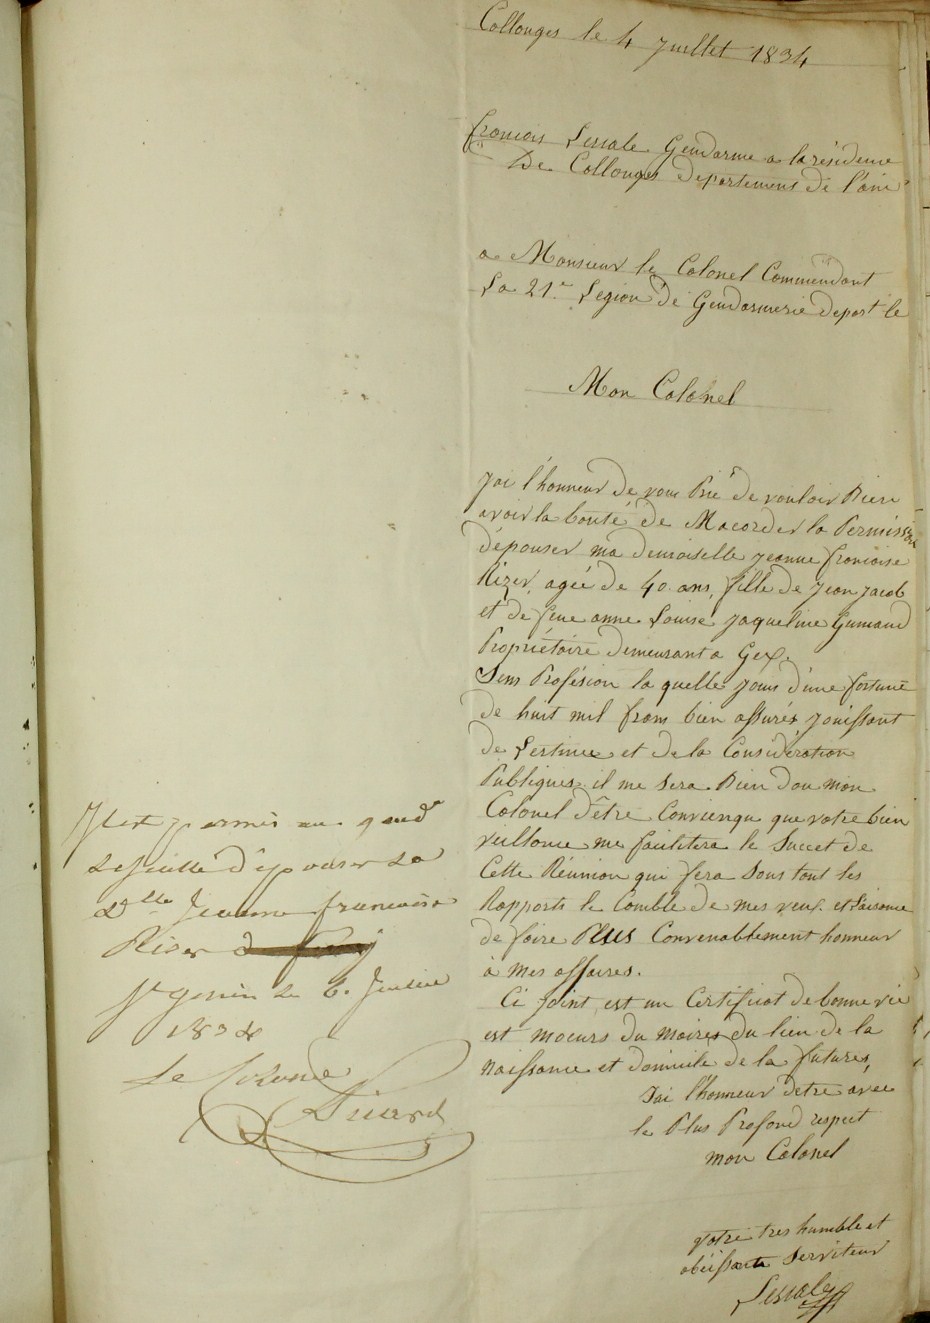 Collonges le 4 juillet 1834
francois Lessale Gendarme a la résidence
De Collonges departement de l'ain
a Monsieur le Colonel Commendant
La 21.e Légion de Gendarmerie depart.le
Mon Colonel
J'ai l'honneur de vous Prié de vouloir Bien
avoir la bonté de Macorder la Permission
d'épouser ma demoiselle jeanne francoise
Rizer, agée de 40 ans, fille de jean jacob
et de feue anne Louise jaqueline
Propriétoire demeurant a Gex.
Sens Profésion la quelle jouis d'une fortune
de huit mil frans bien assurés jouissant
de Lestime et de la Considération
Publiques. il me sera Bien dou mon
Colonel d'être Convienqu que votre bien
veillance me facilitera le Succet de
Cette Réunion qui sera Sous tout les
Rapports le Comble de mes veux. et
de faire Plus Convenablement honneur
à mes affaires.
Ci joint est un Certificat de bonne vie
est moeurs du maires du lieu de la
naissance et domicile de la future,
J'ai l'honneur d'etre avec
le Plus Profond respect
mon Colonel
votre tres humble et
obéissant Serviteur
Lessale
Il est permis au gend.e
d'épouser La
D.lle Jeanne francoise
Rizer
Le 6. Juillet
1834
Le Colonel